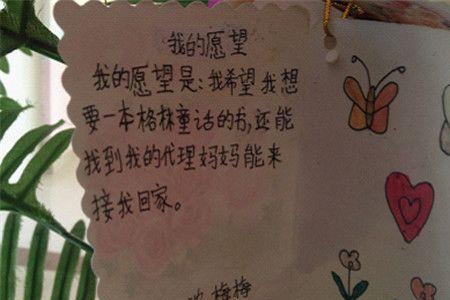 我的愿望
我的愿望是:我希望我想
要一本格林童话的书,还能
找到我的代理妈妈能来
接我回家。
梅梅